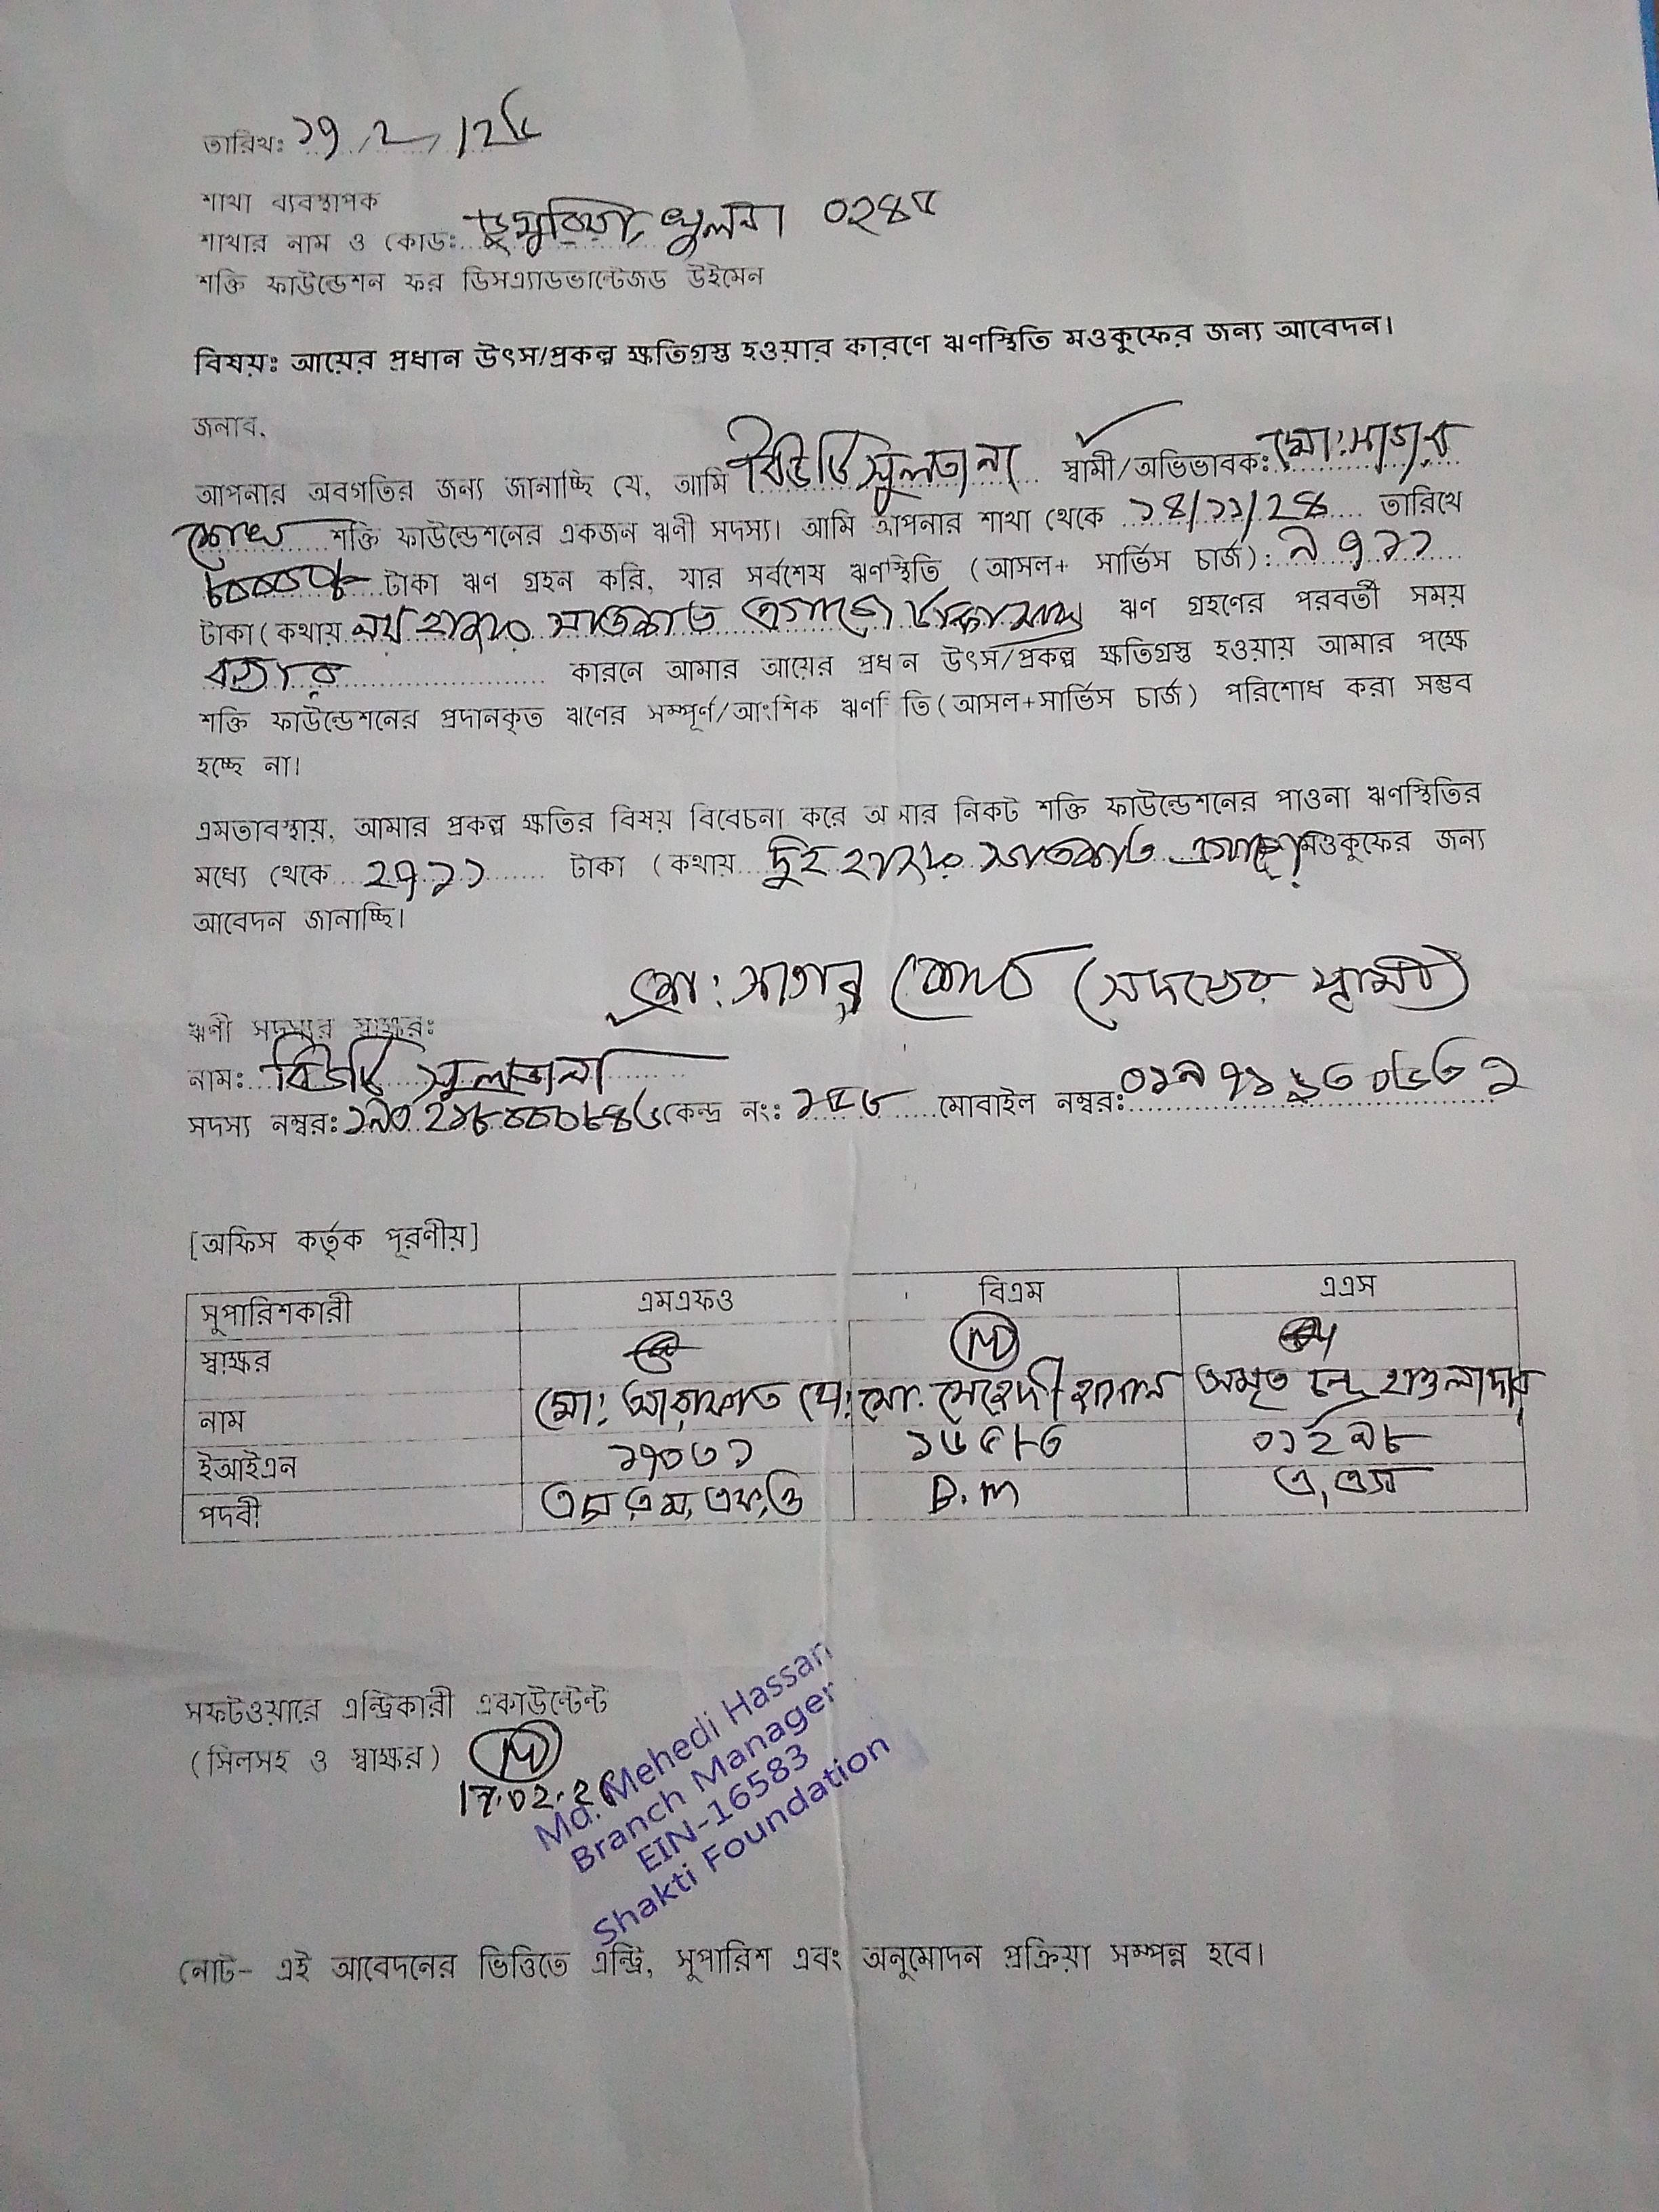 তারিখঃ ১৭/২/২৬
শাখা ব্যবস্থাপক
শাখার নাম ও কোডঃ ডুমুরিয়া, খুলনা ০২৪৫
শক্তি ফাউন্ডেশন ফর ডিসএ্যাডভান্টেজড উইমেন
বিষয়ঃ আয়ের প্রধান উৎস/প্রকল্প ক্ষতিগ্রস্ত হওয়ার কারণে ঋণস্থিতি মওকুফের জন্য আবেদন।
জনাব,
আপনার অবগতির জন্য জানাচ্ছি যে, আমি বিউটি সুলতানা স্বামী/অভিভাবকঃ মো: সাগর
শেখ শক্তি ফাউন্ডেশনের একজন ঋণী সদস্য। আমি আপনার শাখা থেকে ১৪/১১/২৪ তারিখে
৮০০০০/- টাকা ঋণ গ্রহন করি, যার সর্বশেষ ঋণস্থিতি (আসল+ সার্ভিস চার্জ): ৯৭১১
টাকা (কথায় নয় হাজার সাতশত এগারো টাকা মাত্র ঋণ গ্রহণের পরবর্তী সময়
কারনে আমার আয়ের প্রধান উৎস/প্রকল্প ক্ষতিগ্রস্ত হওয়ায় আমার পক্ষে
শক্তি ফাউন্ডেশনের প্রদানকৃত ঋণের সম্পূর্ণ/আংশিক ঋণ তি (আসল+সার্ভিস চার্জ) পরিশোধ করা সম্ভব
হচ্ছে না।
এমতাবস্থায়, আমার প্রকল্প ক্ষতির বিষয় বিবেচনা করে আমার নিকট শক্তি ফাউন্ডেশনের পাওনা ঋণস্থিতির
মধ্যে থেকে ২৭১১ টাকা (কথায় দুই হাজার সাতশত এগারো মওকুফের জন্য
আবেদন জানাচ্ছি।
মো: সাগর শেখ (সদস্যের স্বামী)
ঋণী সদস্যর স্বাক্ষরঃ
নামঃ বিউটি সুলতানা
সদস্য নম্বরঃ কেন্দ্র নং: ১৫৩ মোবাইল নম্বরঃ
[অফিস কর্তৃক পূরণীয়]
সুপারিশকারী এমএফও বিএম এএস
স্বাক্ষর
নাম মো: আরাফাত মো: মেহেদী হাসান অমৃত চন্দ্র হাওলাদার
ইআইএন ১৭০৩১ ১৬৫৮৩ ০১২৯৮
পদবী এস,এম,এফ,ও B.M এ,এস
সফটওয়ারে এন্ট্রিকারী একাউন্টেন্ট
(সিলসহ ও স্বাক্ষর)
17.02.26
Md. Mehedi Hassan
Branch Manager
EIN-16583
Shakti Foundation
নোট- এই আবেদনের ভিত্তিতে এন্ট্রি, সুপারিশ এবং অনুমোদন প্রক্রিয়া সম্পন্ন হবে।